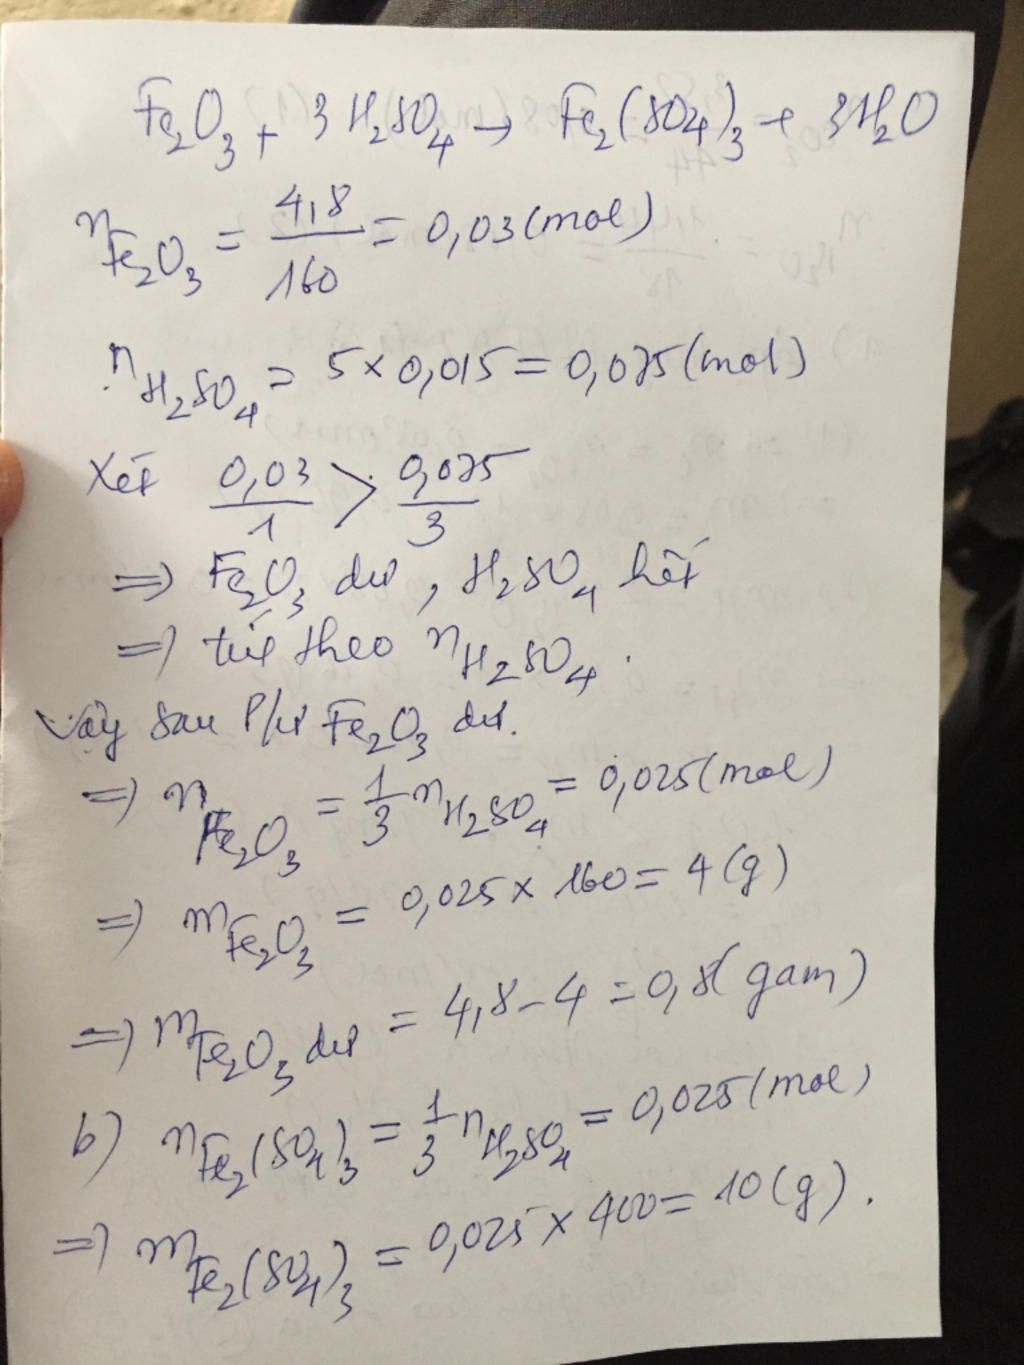 Fe₂O₃ + 3H₂SO₄ → Fe₂(SO₄)₃ + 3H₂O
n Fe₂O₃ = 4,8/160 = 0,03 (mol)
n H₂SO₄ = 5 × 0,015 = 0,075 (mol)
Xét 0,03/1 > 0,075/3
⇒ Fe₂O₃ dư, H₂SO₄ hết
⇒ tính theo n H₂SO₄.
Vậy sau p/ư Fe₂O₃ dư.
⇒ n Fe₂O₃ = 1/3 n H₂SO₄ = 0,025 (mol)
⇒ m Fe₂O₃ = 0,025 × 160 = 4 (g)
⇒ m Fe₂O₃ dư = 4,8 - 4 = 0,8 (gam)
b) n Fe₂(SO₄)₃ = 1/3 n H₂SO₄ = 0,025 (mol)
⇒ m Fe₂(SO₄)₃ = 0,025 × 400 = 10 (g).